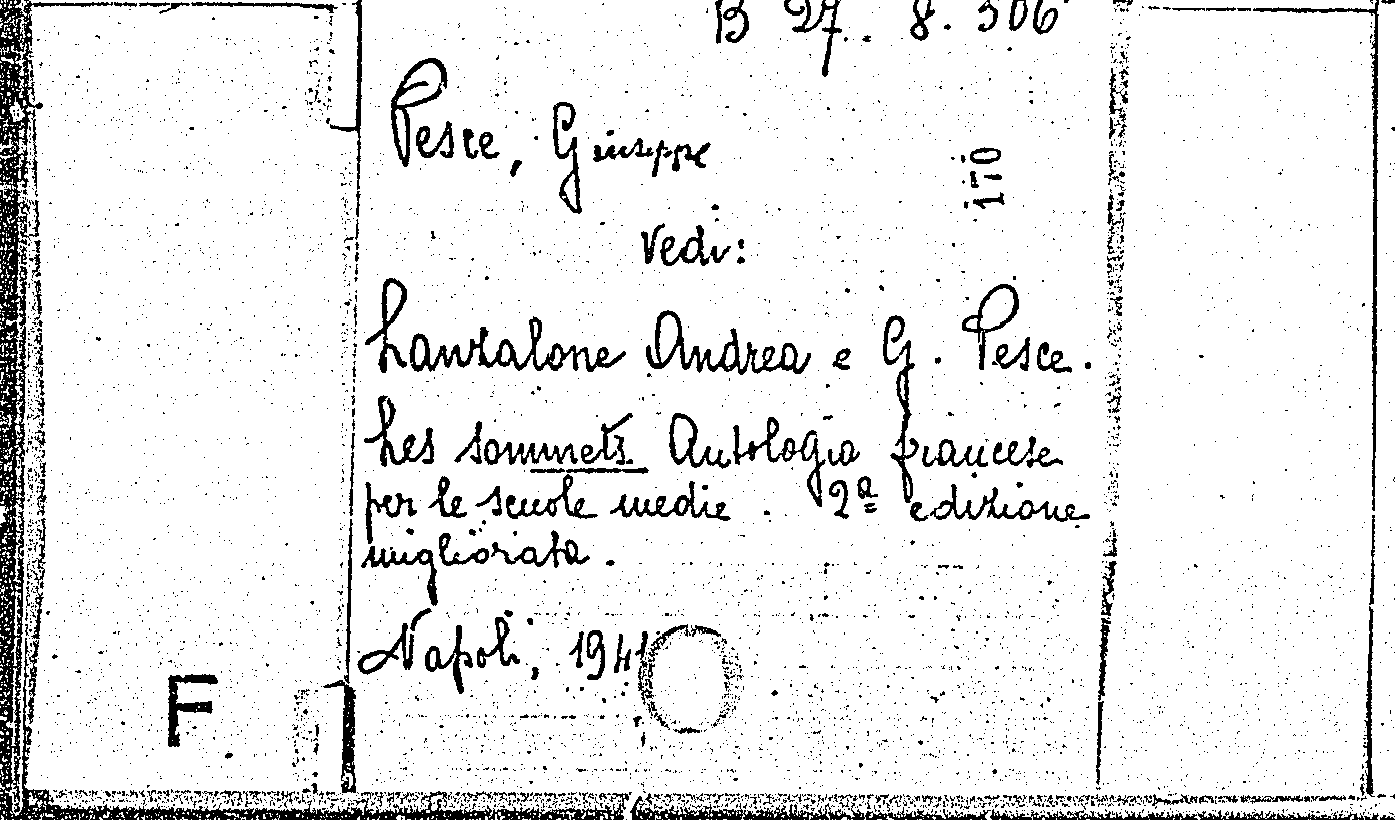 B 27. 8. 306
Pesce, Giuseppe
170
Vedi:
Lanzalone Andrea e G. Pesce.
Les sommets. Antologia francese
per le scuole medie. 2ª edizione
migliorata.
Napoli, 1941
F